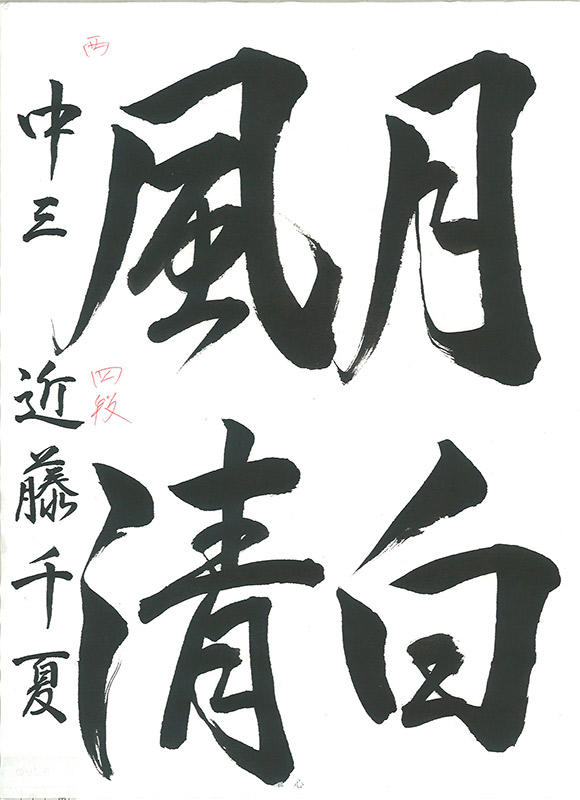 月白
風清
中三 近藤千夏
四段
西
心